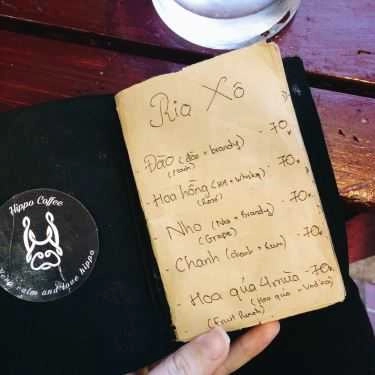 Hippo Coffee
Keep calm and love hippo
Ria Xô
- Đào (đào + brandy) - 70k
- Hoa hồng (HH + Whisky) - 70k
(Rose)
- Nho (Nho + Brandy) - 70k
(Grape)
- Chanh (chanh + Rum) - 70k
- Hoa quả 4 mùa - 70k
(Hoa quả + Vodka)
(Fruit Punch)